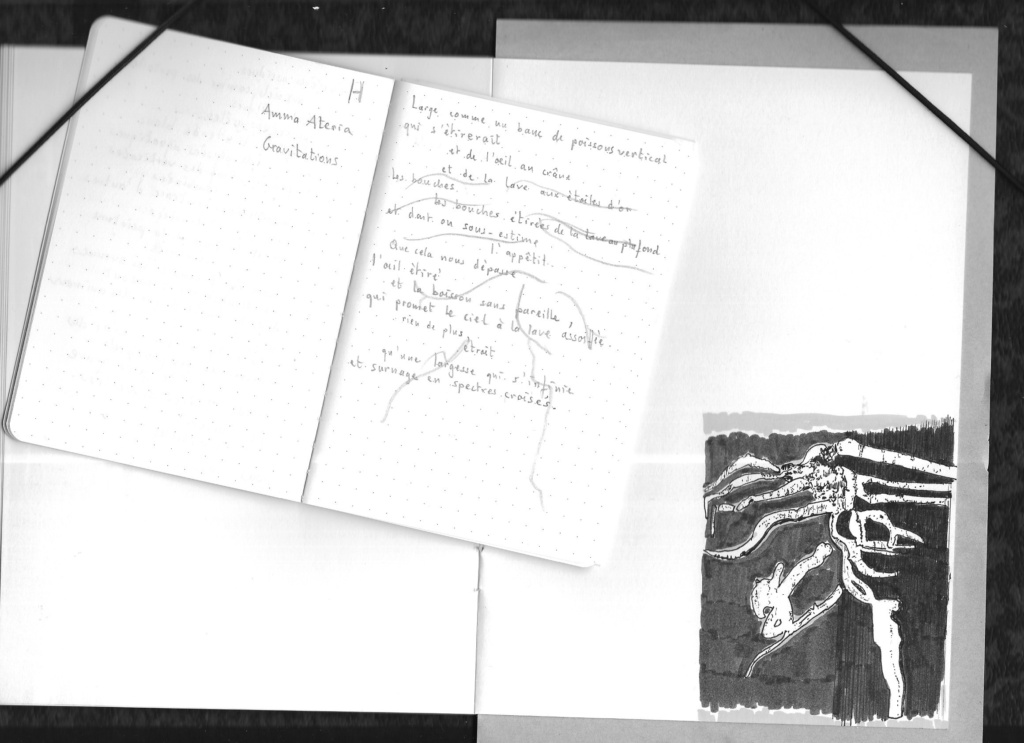 H
Amma Ateria
Gravitations
Large comme un banc de poissons vertical
qui s'étirerait
et de l'oeil au crâne
et de la lave aux étoiles d'or
les bouches
les bouches étirées de la lave au plafond
et dont on sous-estime
l'appétit.
Que cela nous dépasse
l'oeil étiré
et la boisson sans pareille,
qui promet le ciel à la lave assoiffée
rien de plus
était
qu'une largesse qui s'infinie
et surnage en spectres croisés.